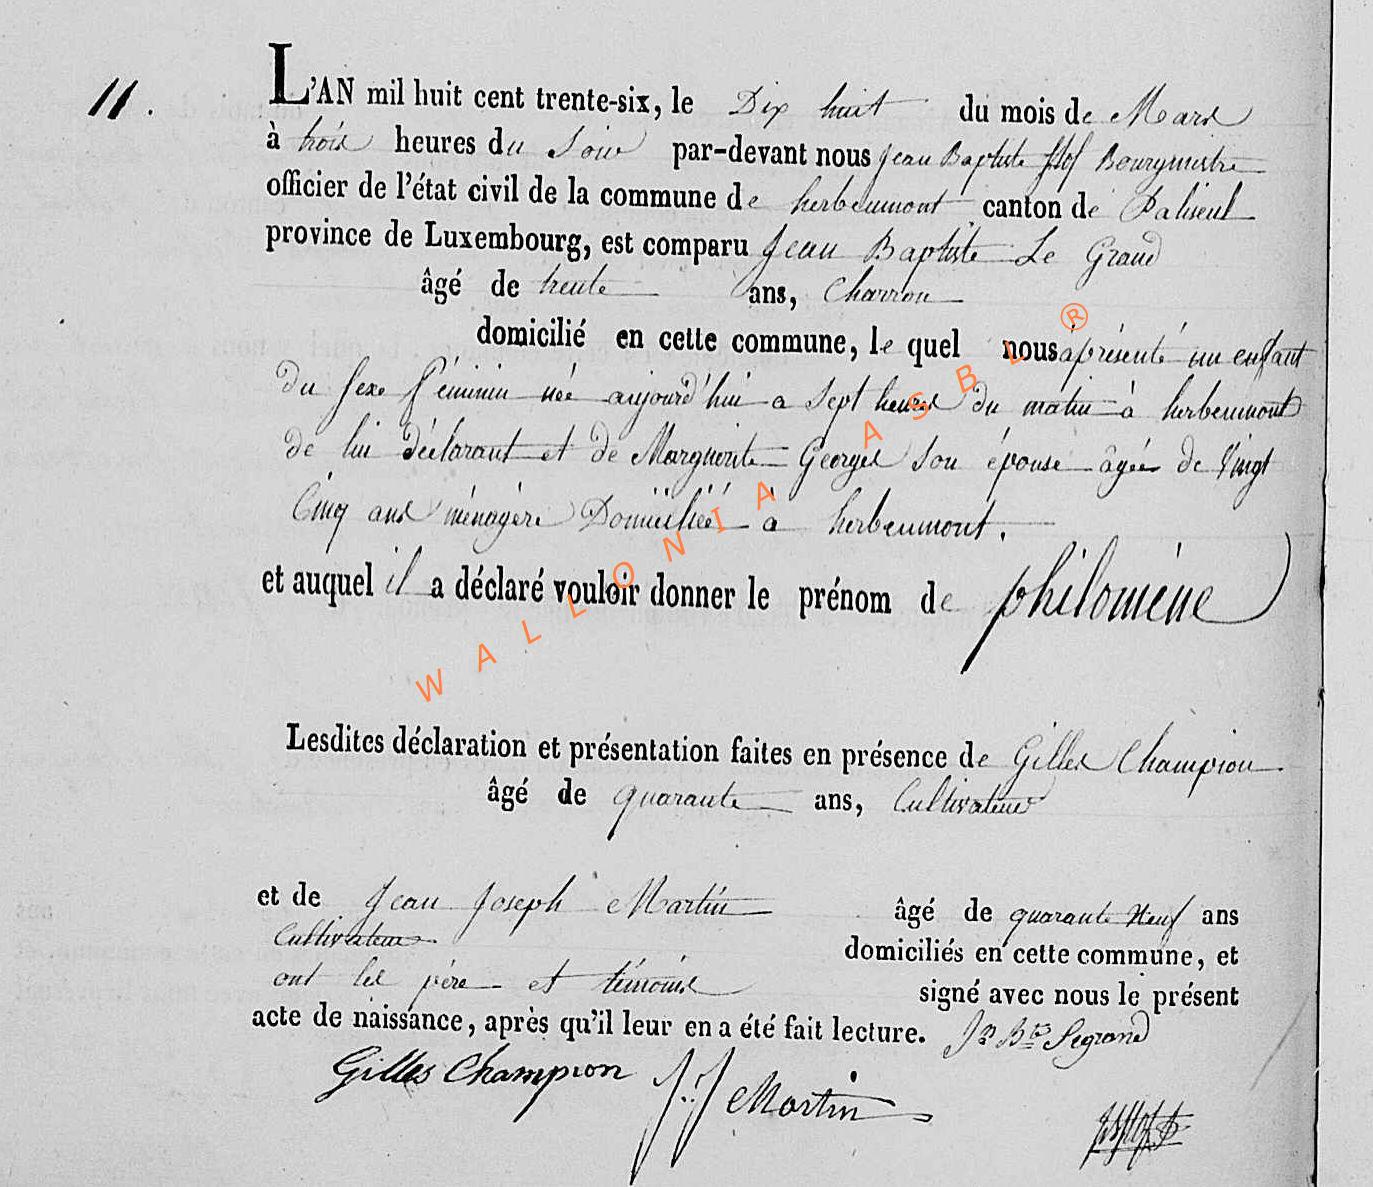 11.
L'AN mil huit cent trente-six, le Dix huit du mois de Mars
à trois heures du Soir par-devant nous Jean Baptiste Bourgmestre
officier de l'état civil de la commune de herbeumont canton de Paliseul
province de Luxembourg, est comparu Jean Baptiste Le Grand
âgé de trente ans, Charron
domicilié en cette commune, le quel nous a présenté un enfant
du sexe féminin née aujourd'hui a sept heures du matin à herbeumont
de lui déclarant et de Marguerite Georges son épouse âgée de Vingt
Cinq ans ménagère Domiciliée à herbeumont.
et auquel il a déclaré vouloir donner le prénom de philomène
Lesdites déclaration et présentation faites en présence de Gilles Champion
âgé de quarante ans, Cultivateur
et de Jean Joseph Martin âgé de quarante Neuf ans
Cultivateur domiciliés en cette commune, et
ont les père et témoins signé avec nous le présent
acte de naissance, après qu'il leur en a été fait lecture. Jn Bte Legrand
Gilles Champion J.J Martin
WALLONIA ASBL ®